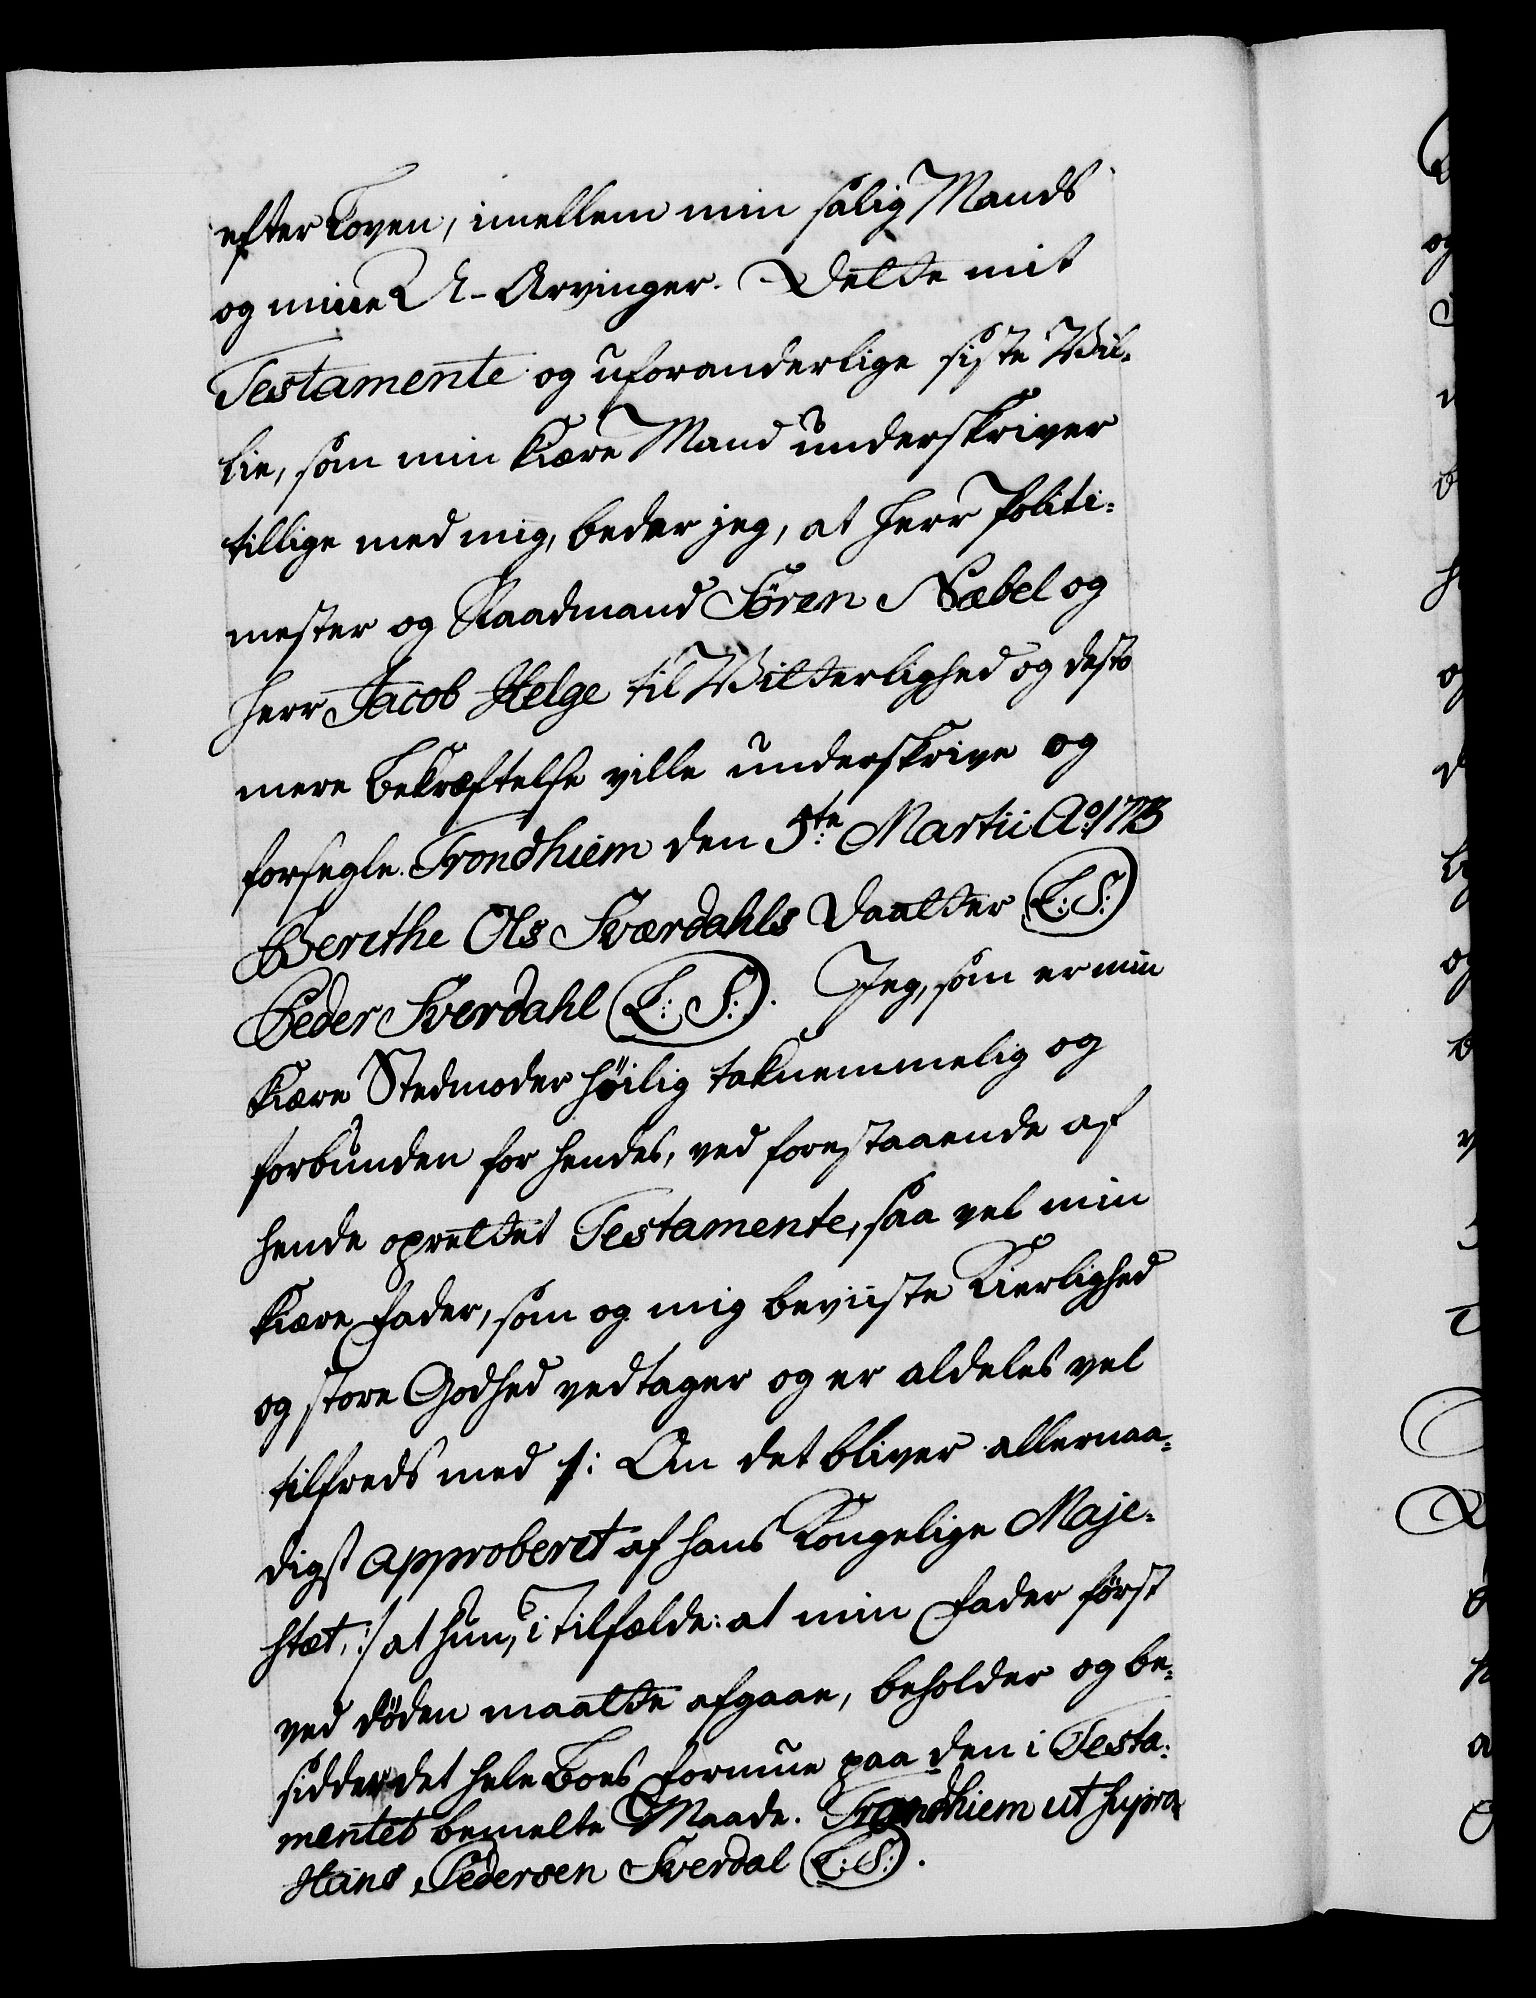 efter Loven, imellem min salig Mands
og mine Ud-Arvinger. Dette mit
Testamente og uforanderlige siste Vil-
lie, som min kiære Mand underskriver
tillige med mig, beder jeg, at Herr Politi-
mester og Raadmand Sören Næbel og
Herr Jacob Helge til Vitterlighed og desto
mere Bekræftelse ville underskrive og
forsegle. Trondhiem den 5te Martii Ao:
Berethe Ols Sværdahls Daatter (L:S:)
Peder Sverdahl (L:S:). Jeg, som er min
kiære Stedmoder höilig taknemmelig og
forbunden for hendes, ved forestaaende af
hende oprettet Testamente, saa vel min
kiære Fader, som og mig beviiste Kierlighed
og store Godhed vedtager og er aldeles vel
tilfreds med /: Om det bliver allernaa-
digst approberet af hans Kongelige Maje-
stæt, :/ at hun, i Tilfælde: at min Fader först
ved döden maatte afgaae, beholder og be-
sidder det hele Boes Formue paa den i Testa-
mentet bemelte Maade. Trondhiem ut supra
Hans Pedersen Sverdal (L:S:).